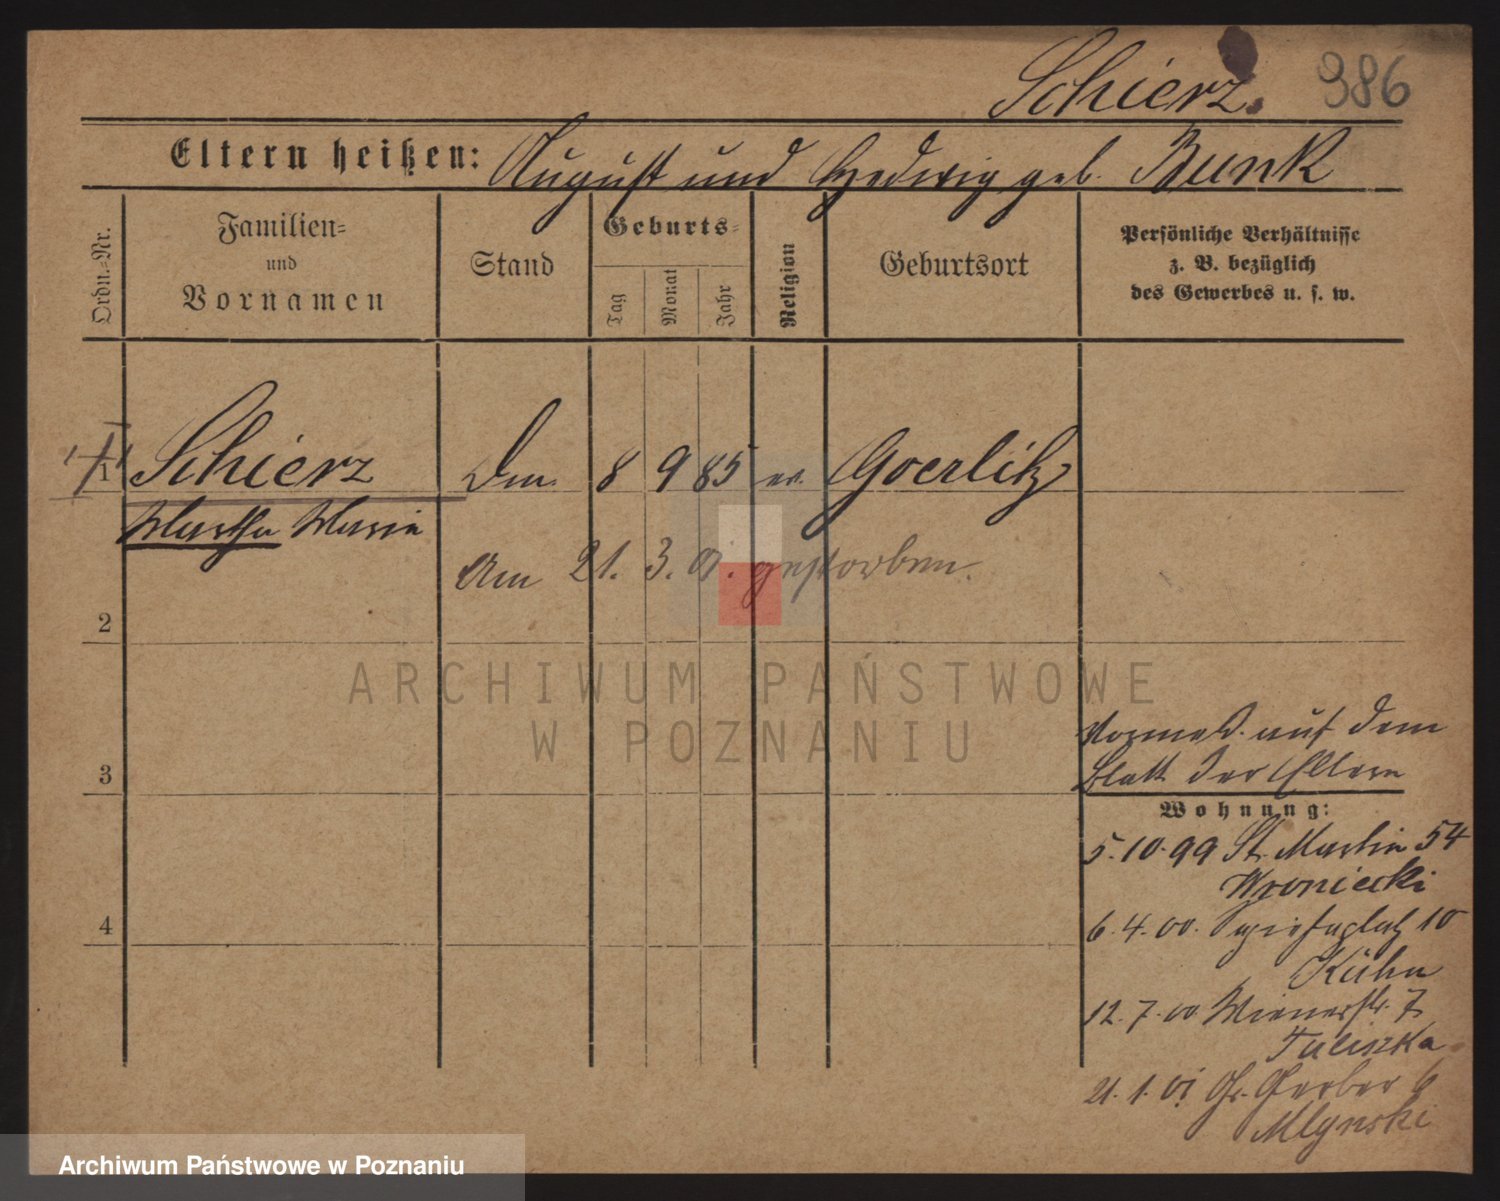 Schierz. 386
Eltern heißen: August und Hedwig geb. Bunk
Ordn.-Nr.
Familien-
und
Vornamen
Stand
Geburts-
Tag
Monat
Jahr
Religion
Geburtsort
Persönliche Verhältnisse
z. B. bezüglich
des Gewerbes u. s. w.
1 Schierz 8 9 85 ev. Goerlitz
Martha Marie
Am 21. 3. 01. gestorben.
2
ARCHIWUM PAŃSTWOWE
W POZNANIU
auf dem
3 Blatt der Eltern
Wohnung:
5. 10. 99 St. Martin 54
Wroniecki
4 6. 4. 00. Sapiehaplatz 10
Kühn
12. 7. 00 Wienerstr. 7
Tuliszka
21. 1. 01 Gr. Gerber 6
Mlynski
Archiwum Państwowe w Poznaniu